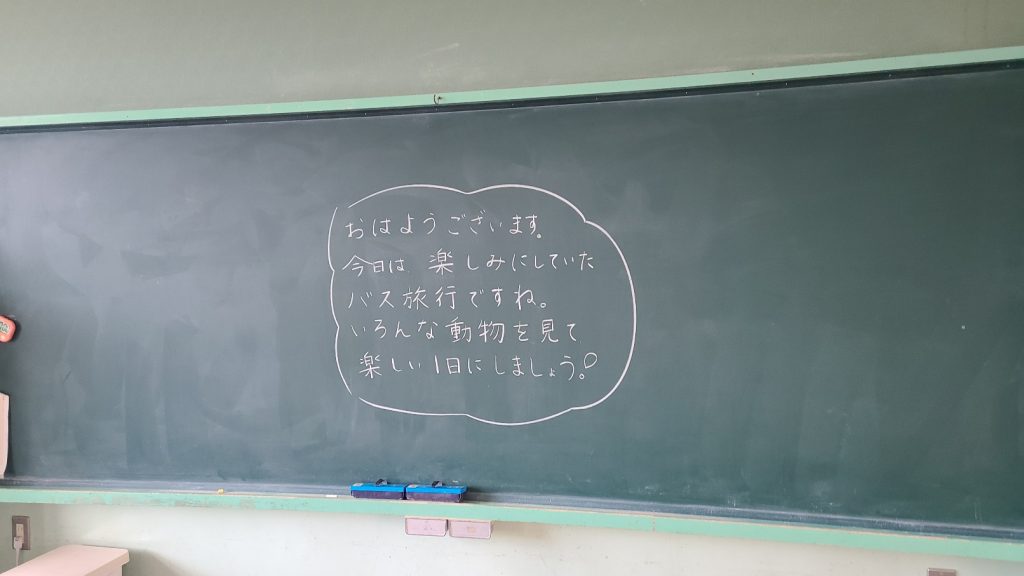 おはようございます。
今日は 楽しみにしていた
バス旅行ですね。
いろんな動物を見て
楽しい1日にしましょう。